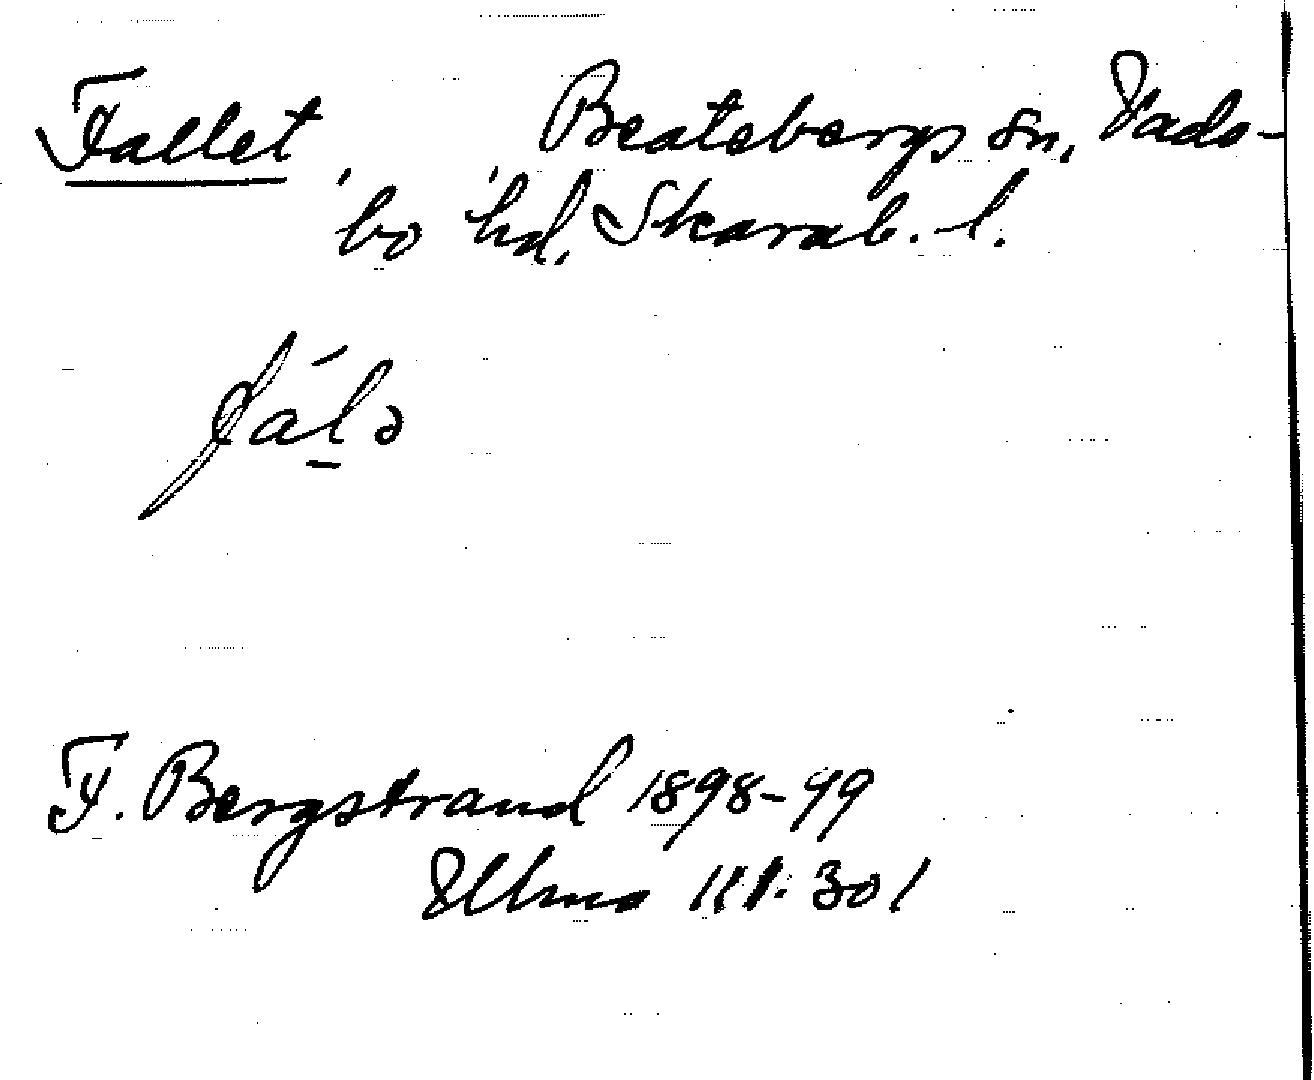 Fallet, Beatebergs sn, Vads-
bo hd, Skarab. l.
fál̠ə
F. Bergstrand 1898-99
Ulma 111:301